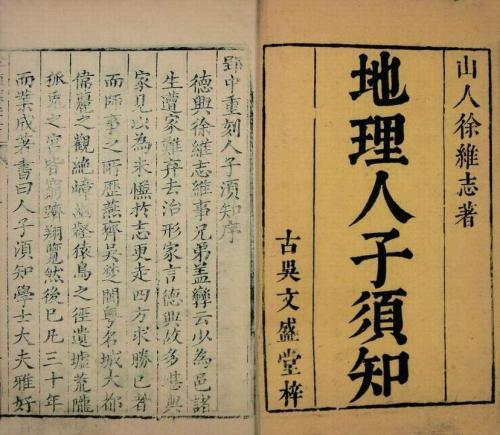 山人徐維志著
地理人子須知
古吳文盛堂梓
郢中重刻人子須知序
德興徐維志維事兄弟盖孿云以為邑諸
生遭家難弃去治形家言德興故多堪輿
家見以為未愜於志更走四方求勝已者
而師事之所歷燕齊吳楚閩粤名城大都
偉麗之觀絶嶂幽壑猿鳥之徑遺墟荒隴
狐兎之宮皆窮濟翔覽然後已凡三十年
而業成著書曰人子須知學士大夫雅好